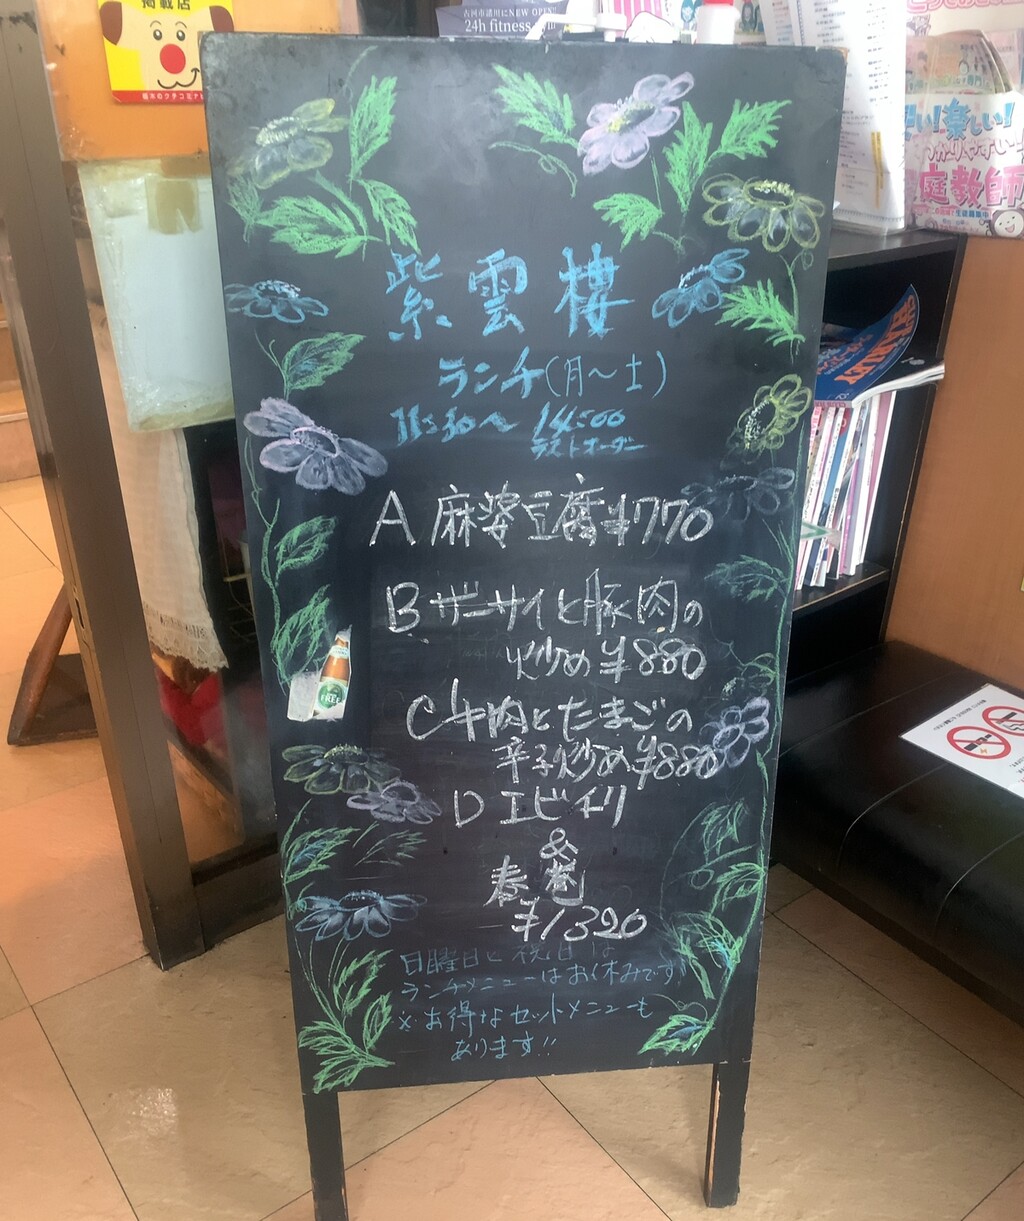 掲載店
古河市諸川にNEW OPEN!
24h fitness
楽しい!
庭教師
紫雲楼
ランチ(月〜土)
11:30〜14:00
ラストオーダー
A 麻婆豆腐¥770
B ザーサイと豚肉の
炒め¥880
C 牛肉とたまごの
辛子炒め¥880
D エビチリ
&
春巻
¥1320
FREE
日曜日と祝日は
ランチメニューはお休みです
※お得なセットメニューも
あります!!